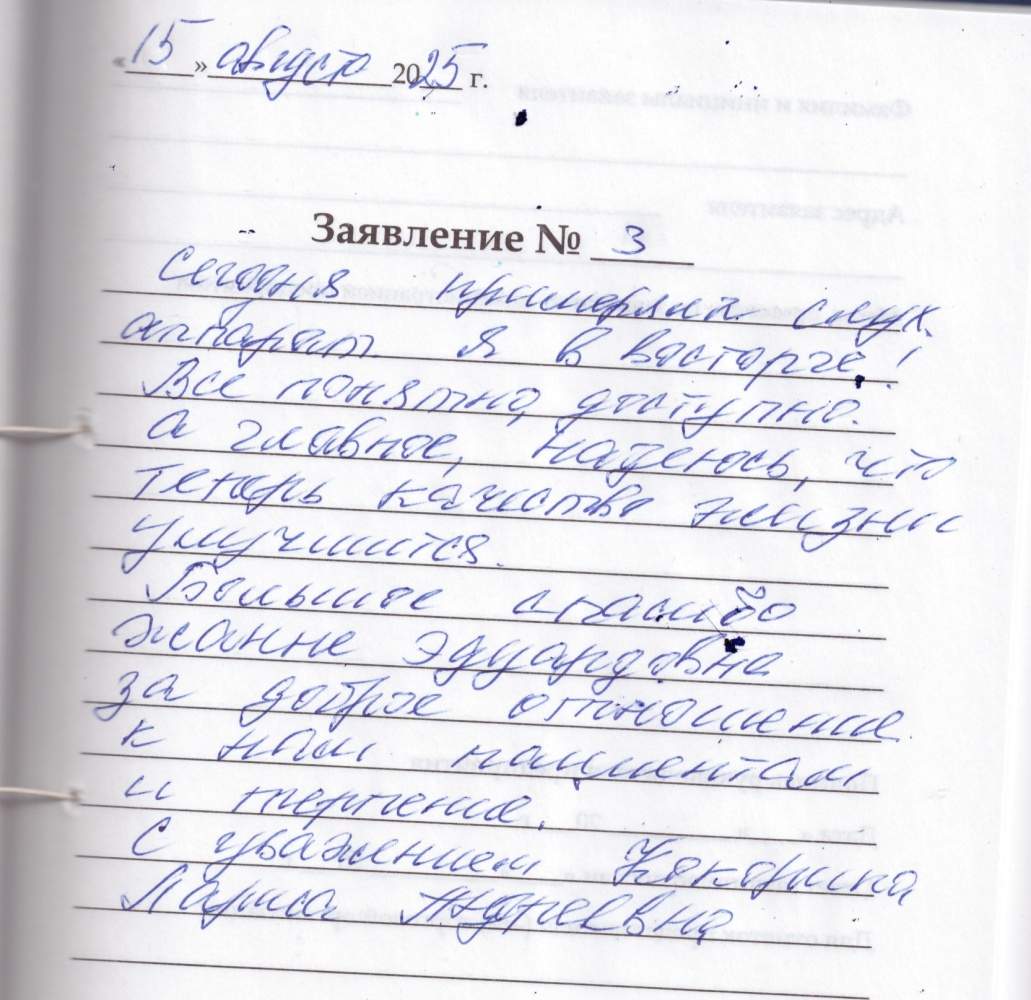 «15» августа 2025 г.
Заявление № 3
Сегодня примеряли слух.
аппарат я в восторге!
Все понятно, доступно.
а главное, надеюсь, что
теперь качество жизни
улучшится.
Большое спасибо
Жанне Эдуардовне
за доброе отношение
к нам пациентам
и терпение.
С уважением Кокорина
Лариса Андреевна